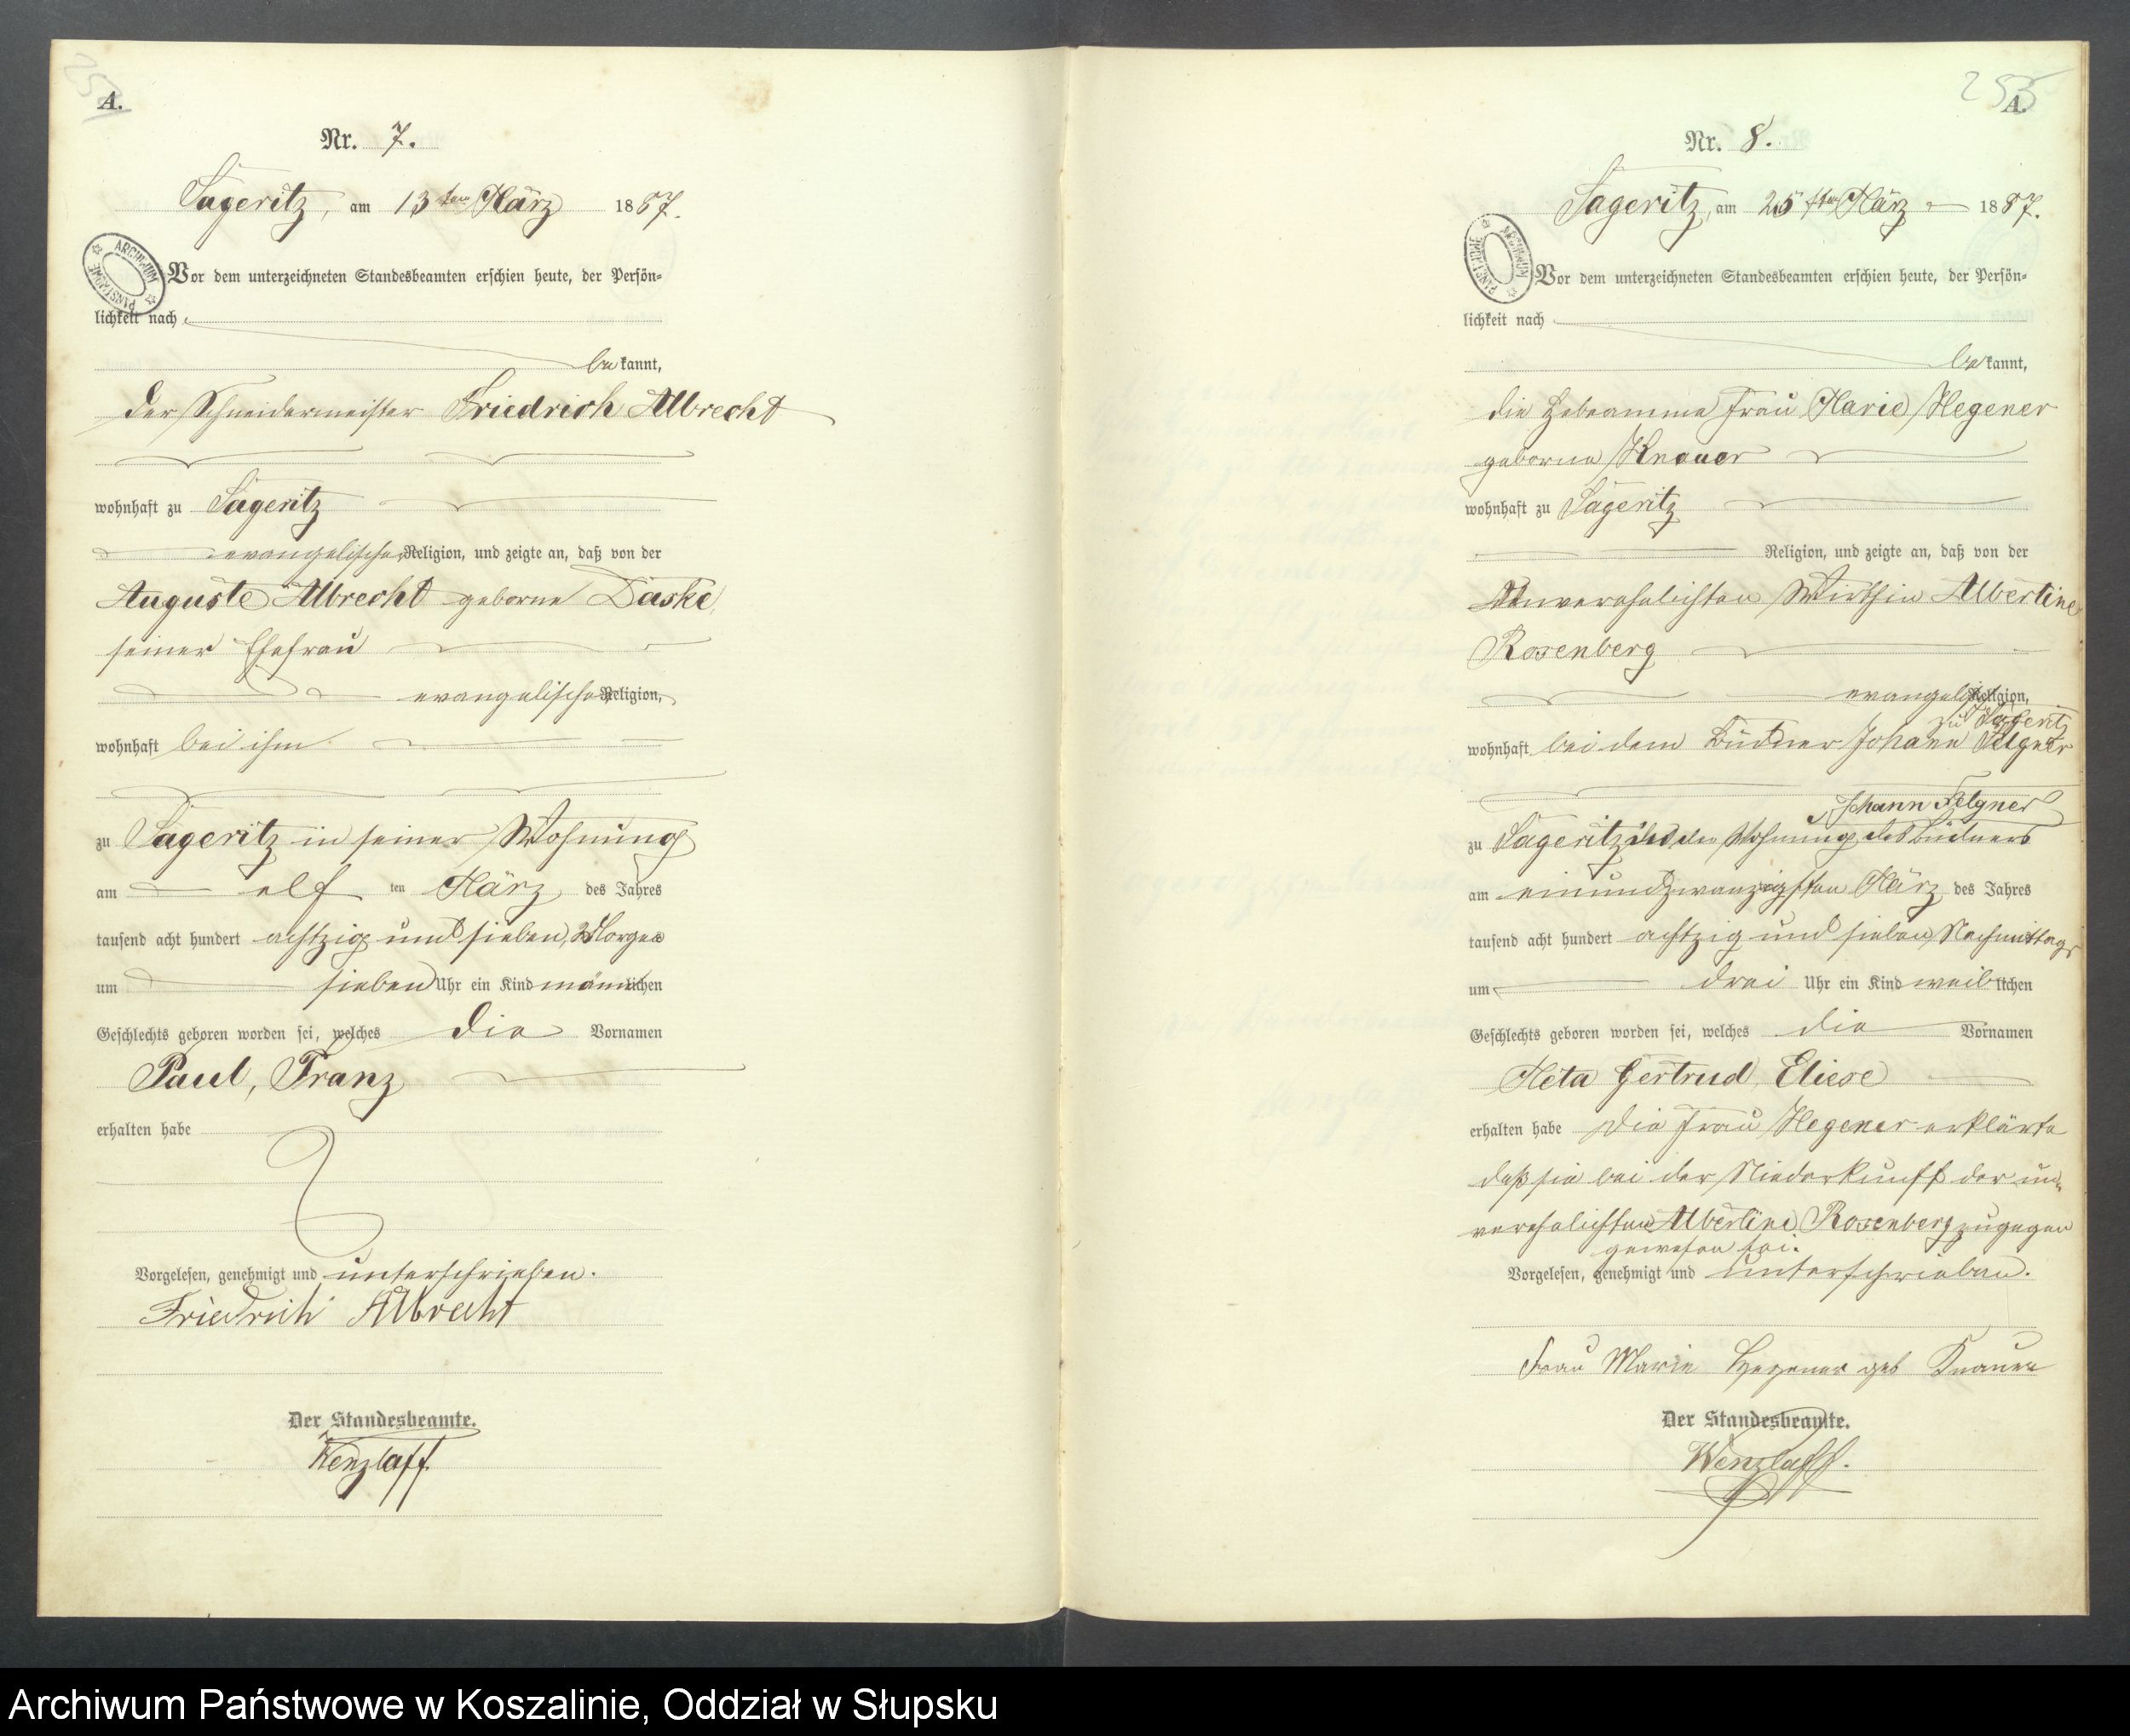 A.
Nr. 7.
Sageritz, am 13ten März 1887.
ARCHIWUM PAŃSTWOWE
Vor dem unterzeichneten Standesbeamten erschien heute, der Persön-
lichkeit nach
bekannt,
der Schneidermeister Friedrich Albrecht
wohnhaft zu Sageritz
evangelischer Religion, und zeigte an, daß von der
Auguste Albrecht geborne Daske,
seiner Ehefrau
evangelischer Religion,
wohnhaft bei ihm
zu Sageritz in seiner Wohnung
am elf ten März des Jahres
tausend acht hundert achtzig und sieben, Morgens
um sieben Uhr ein Kind männlichen
Geschlechts geboren worden sei, welches die Vornamen
Paul, Franz
erhalten habe
Vorgelesen, genehmigt und unterschrieben.
Friedrich Albrecht
Der Standesbeamte.
Wenzlaff.
255
A.
Nr. 8.
Sageritz, am 25sten März 1887.
ARCHIWUM PAŃSTWOWE
Vor dem unterzeichneten Standesbeamten erschien heute, der Persön-
lichkeit nach
bekannt,
die Hebeamme Frau Marie Hegener
geborne Knauer
wohnhaft zu Sageritz
Religion, und zeigte an, daß von der
Unverehelichten Wirthin Albertine
Rosenberg
evangelisch Religion,
zu Sageritz
wohnhaft bei dem Büdner Johann Felgner
Johann Felgner
zu Sageritz in der Wohnung des Büdners
am einundzwanzigsten März des Jahres
tausend acht hundert achtzig und sieben, Nachmittags
um drei Uhr ein Kind weiblichen
Geschlechts geboren worden sei, welches die Vornamen
Meta Gertrud, Eliese
erhalten habe Die Frau Hegener erklärte
daß sie bei der Niederkunft der un-
verehelichten Albertine Rosenberg zugegen
gewesen sei.
Vorgelesen, genehmigt und unterschrieben.
Frau Marie Hegener geb Knauer
Der Standesbeamte.
Wenzlaff.
Archiwum Państwowe w Koszalinie, Oddział w Słupsku